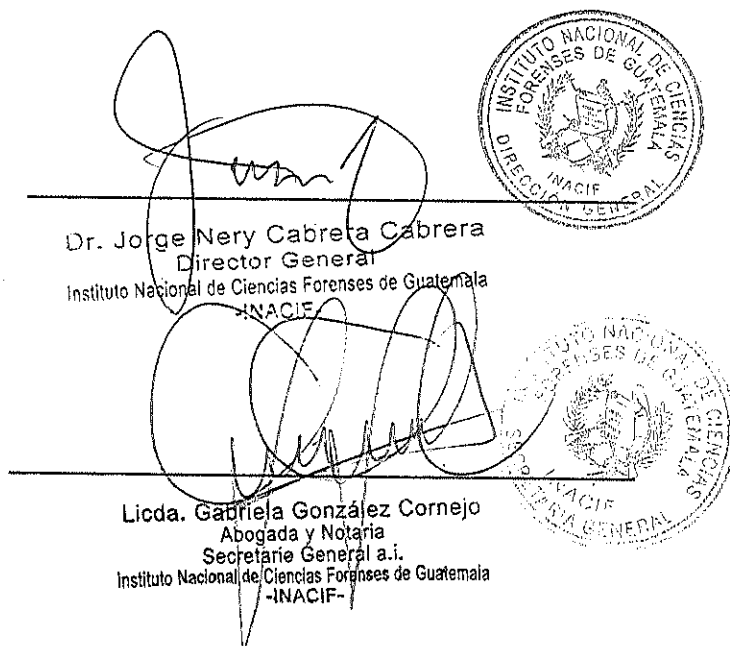 INSTITUTO NACIONAL DE CIENCIAS
FORENSES DE GUATEMALA
INACIF
DIRECCIÓN GENERAL
Dr. Jorge Nery Cabrera Cabrera
Director General
Instituto Nacional de Ciencias Forenses de Guatemala
-INACIF-
INSTITUTO NACIONAL DE CIENCIAS
FORENSES DE GUATEMALA
INACIF
SECRETARIA GENERAL
Licda. Gabriela González Cornejo
Abogada y Notaria
Secretaria General a.i.
Instituto Nacional de Ciencias Forenses de Guatemala
-INACIF-